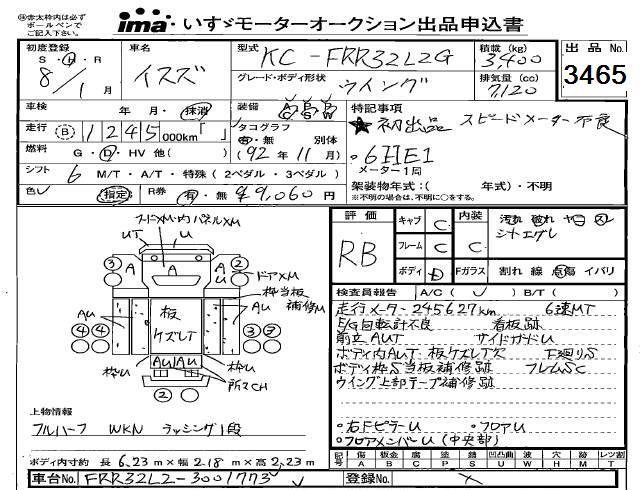 ※赤太枠内は必ず
ボールペンで
ご記入下さい。
ima いすゞモーターオークション出品申込書
初度登録 車名 型式 KC-FRR32L2G 積載(kg) 3,400 出品No.
S・H・R 8/1月 イスズ グレード・ボディ形状 ウイング 排気量(cc) 7,120 3465
車検 年 月・抹消 装備 A P P C S W 特記事項
走行 B 1 2 4 5 000km「 」 タコグラフ 有・無 別体 ★初出品 スピードメーター不良
燃料 G・D・HV 他( ) ('92年11月) 6HE1
シフト 6 M/T・A/T・特殊(2ペダル・3ペダル) メーター1周
色 指定 R券 有・無 ¥9,060円 架装物年式:( 年式)・不明
※不明の場合は、不明に○をする。
スードメ・内パネルXM
UT U
3 A A A U 2 ドアXM
枠当板補修U
AU 板ケズレT AU
4 4 3 7
枠U AU AU 枠U
所々CH
2
上物情報
フルハーフ WKN ラッシング1段
ボディ内寸約 長 6.23m×幅 2.18m×高 2.23m
車台No. FRR32L2-3001773 登録No.
評価 キャブ C 内装 汚れ 破れ ヤニ スレ
RB フレーム C C シートエグレ
ボディ D Fガラス 割れ 線 点傷 イバリ
検査員報告 A/C( ) B/T( )
走行メーター245627km 6速MT
E/G回転計不良 看板跡
前立AUT サイドガードU
ボディ内AUT 板ケズレT穴 下廻りS
ボディ枠S当板補修跡 フレームSC
ウイング上部テープ補修跡
・右下ピラーU ・フロアU
・フロアメンバーU(中央部)
記号 傷 A 板金 B 腐 C 塗 P サビ S 凹 T 凸凹曲 U 波 W 穴 H 跡 M レツ割 T